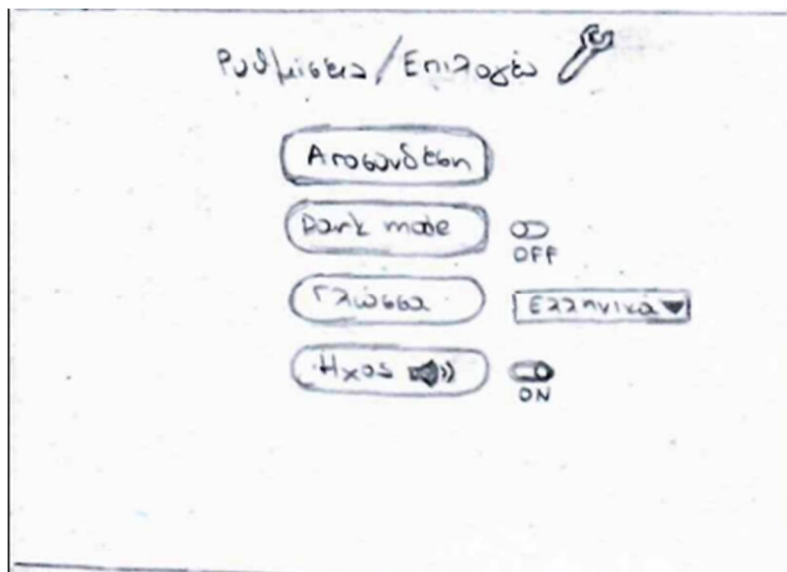 Ρυθμίσεις/Επιλογές
Αποσύνδεση
Dark mode
OFF
Γλώσσα Ελληνικά
Ήχος
ON